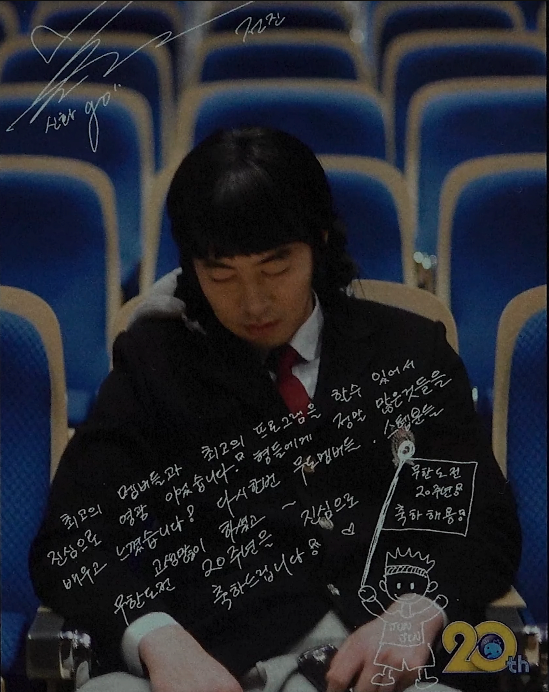 전진
신화 go!!
최고의 멤버들과 최고의 프로그램을 할수 있어서
진심으로 영광 이었습니다! 형들에게 정말 많은것들을
배우고 느꼈습니다! 다시한번 무도멤버들, 스텝분들
고생많이 하셨고 ~ 진심으로
무한도전 20주년을
축하드립니다
무한도전
20주년
축하해용
JUN
JIN
20th